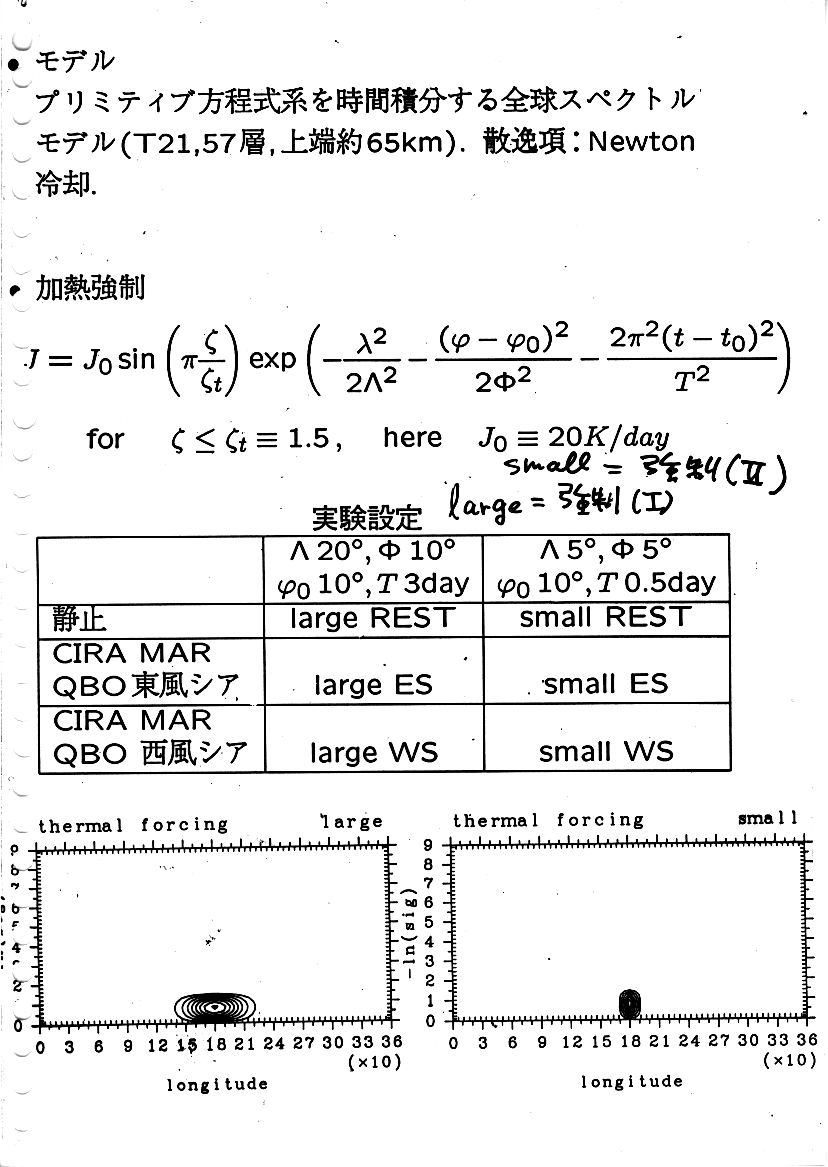 • モデル
プリミティブ方程式系を時間積分する全球スペクトル
モデル(T21,57層,上端約65km). 散逸項:Newton
冷却.
• 加熱強制
J = J₀ sin (π ζ/ζₜ) exp (− λ²/2Λ² − (φ − φ₀)²/2Φ² − 2π²(t − t₀)²/T²)
for ζ ≤ ζₜ ≡ 1.5, here J₀ ≡ 20K/day
small = 強制(II)
large = 強制(I)
実験設定
Λ 20°, Φ 10° Λ 5°, Φ 5°
φ₀ 10°, T 3day φ₀ 10°, T 0.5day
静止 large REST small REST
CIRA MAR
QBO 東風シア large ES small ES
CIRA MAR
QBO 西風シア large WS small WS
thermal forcing large
4
2
0
0 3 6 9 12 15 18 21 24 27 30 33 36
(×10)
longitude
thermal forcing small
-ln(sig)
9
8
7
6
5
4
3
2
1
0
0 3 6 9 12 15 18 21 24 27 30 33 36
(×10)
longitude